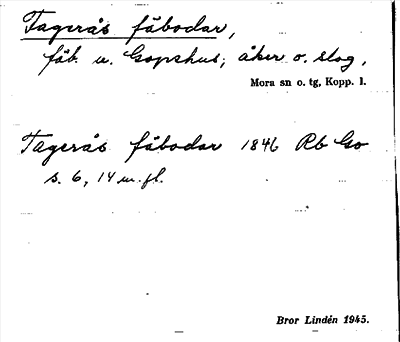 Tagerås fäbodar,
fäb. u. Gopshus; åker o. slog,
Mora sn o. tg, Kopp. l.
Tägerås fäbodar 1846 Rb Go
s. 6, 14 m. fl.
Bror Lindén 1945.